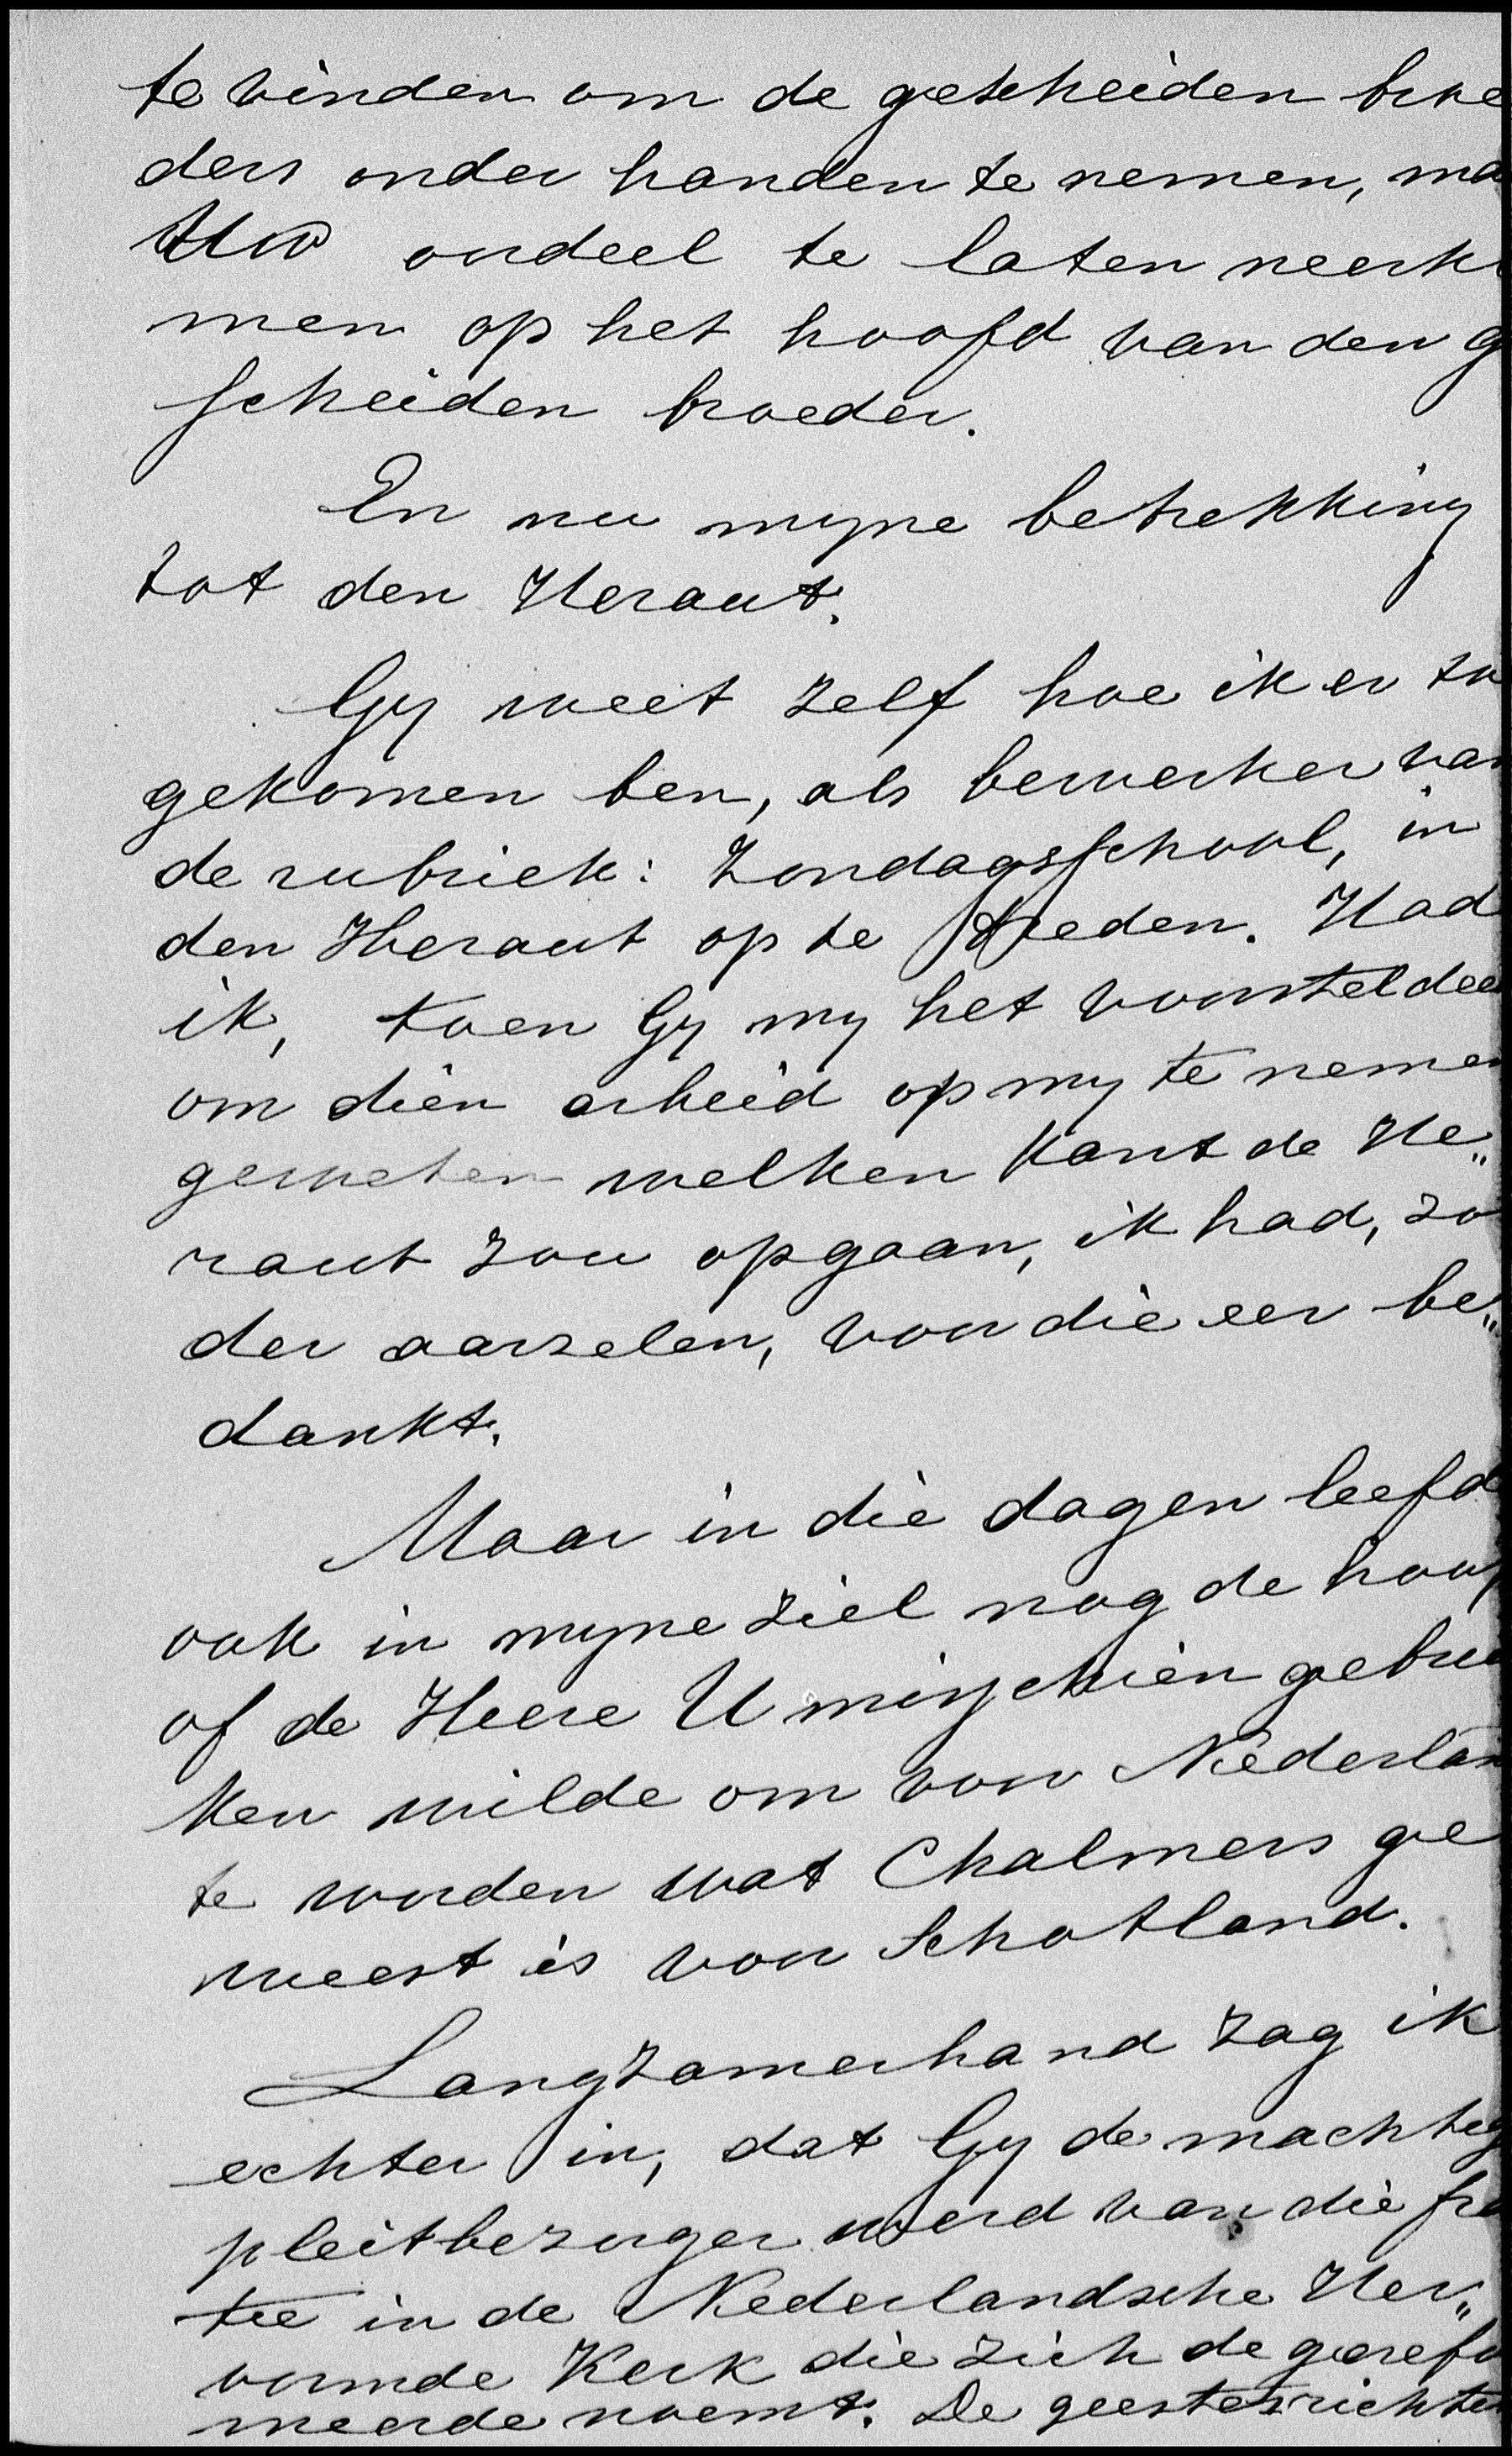 te vinden om de gescheiden broe
ders onder handen te nemen, ma
Uw oordeel te laten neerko
men op het hoofd van den g
scheiden broeder.
En nu myne betrekking
tot den Heraut.
Gy weet zelf hoe ik er to
gekomen ben, als bewerker van
de rubriek: Zondagsschool, in
den Heraut op te treden. Had
ik, toen Gy my het voorstel deed
om dien arbeid op my te nemen
geweten welken kant de He„
raut zou opgaan, ik had, zo
der aarzelen, voor die eer be„
dankt.
Maar in die dagen leefd
ook in myne ziel nog de hoop
of de Heere U misschien gebrui
ken wilde om voor Nederlan
te worden wat Chalmers ge
weest is voor Schotland.
Langzamerhand zag ik
echter in, dat Gy de machtig
pleitbezorger werd van die fra
tie in de Nederlandsche Her„
vormde Kerk die zich de gerefo
meerde noemt. De geestesrichten